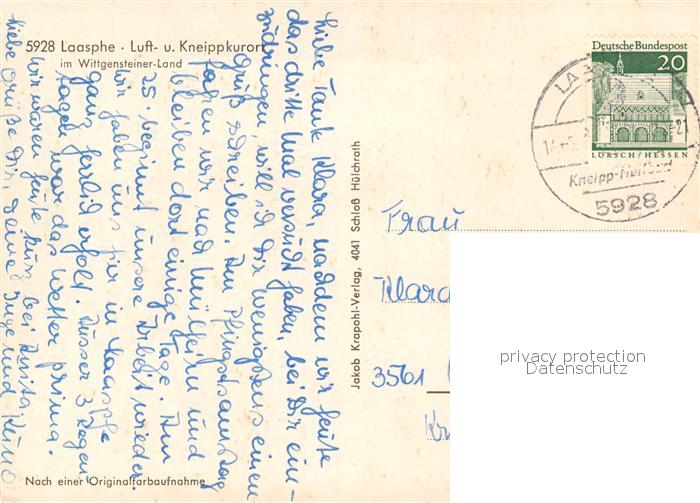 5928 Laasphe · Luft- u. Kneippkurort
im Wittgensteiner-Land
Liebe Tante Klara, nachdem wir heute
das dritte Mal versucht haben, bei Dir ein-
zudringen, will ich Dir wenigstens einen
Gruß schreiben. Am Pfingstsamstag
fahren wir nach Mülheim und
bleiben dort einige Tage. Am
25. beginnt unsere Arbeit wieder.
Wir haben uns hier in Laasphe
ganz herrlich erholt. Ausser 3 Regen-
tagen war das Wetter prima.
Wir waren heute kurz bei
Liebe Grüße Dir, Deine Inge und Kuno
Nach einer Originalfarbaufnahme
Jakob Krapohl-Verlag, 4041 Schloß Hülchrath
Deutsche Bundespost
20
LORSCH/HESSEN
LA
5928
Frau
Klara
3561
privacy protection
Datenschutz